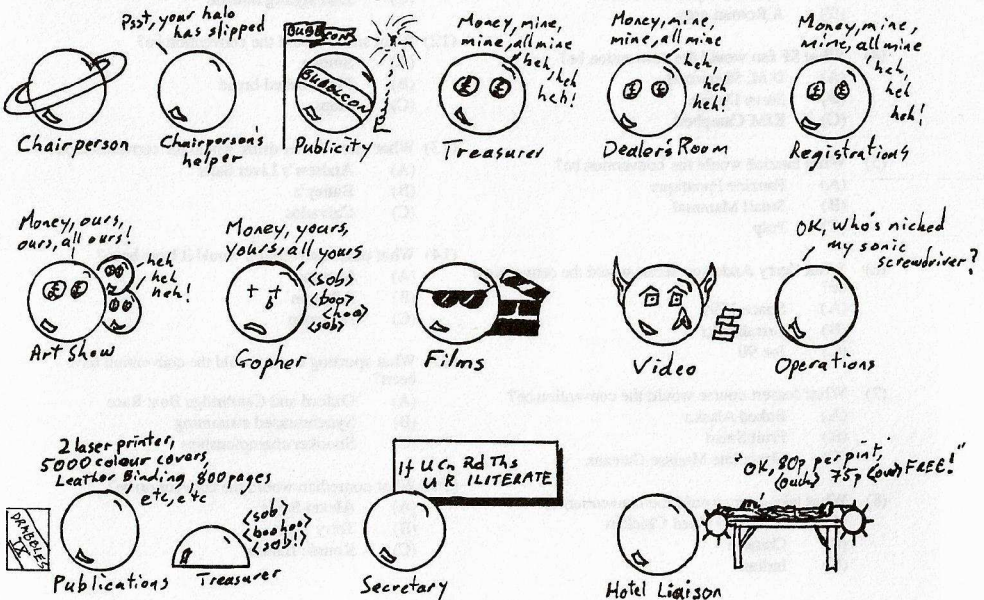 Psst, your halo
has slipped
BUBBLECON
BUBBLECON
Money, mine,
mine, all mine
heh,
heh
heh!
Money, mine,
mine, all mine
heh,
heh
heh!
Money, mine,
mine, all mine
heh,
heh
heh!
Chairperson
Chairperson's
helper
Publicity
Treasurer
Dealer's Room
Registrations
Money, ours,
ours, all ours!
heh
heh
heh!
Money, yours,
yours, all yours
<sob>
<boo>
<hoo>
<sob>
OK, who's nicked
my sonic
screwdriver?
Art Show
Gopher
Films
Video
Operations
2 laser printer,
5000 colour covers,
Leather Binding, 800 pages
etc, etc
DRABBLES
IX
<sob>
<boohoo>
<sob!>
If U Cn Rd Ths
U R ILITERATE
"OK, 80p per pint,
(ouch) 75p (ow) FREE!"
Publications
Treasurer
Secretary
Hotel Liaison